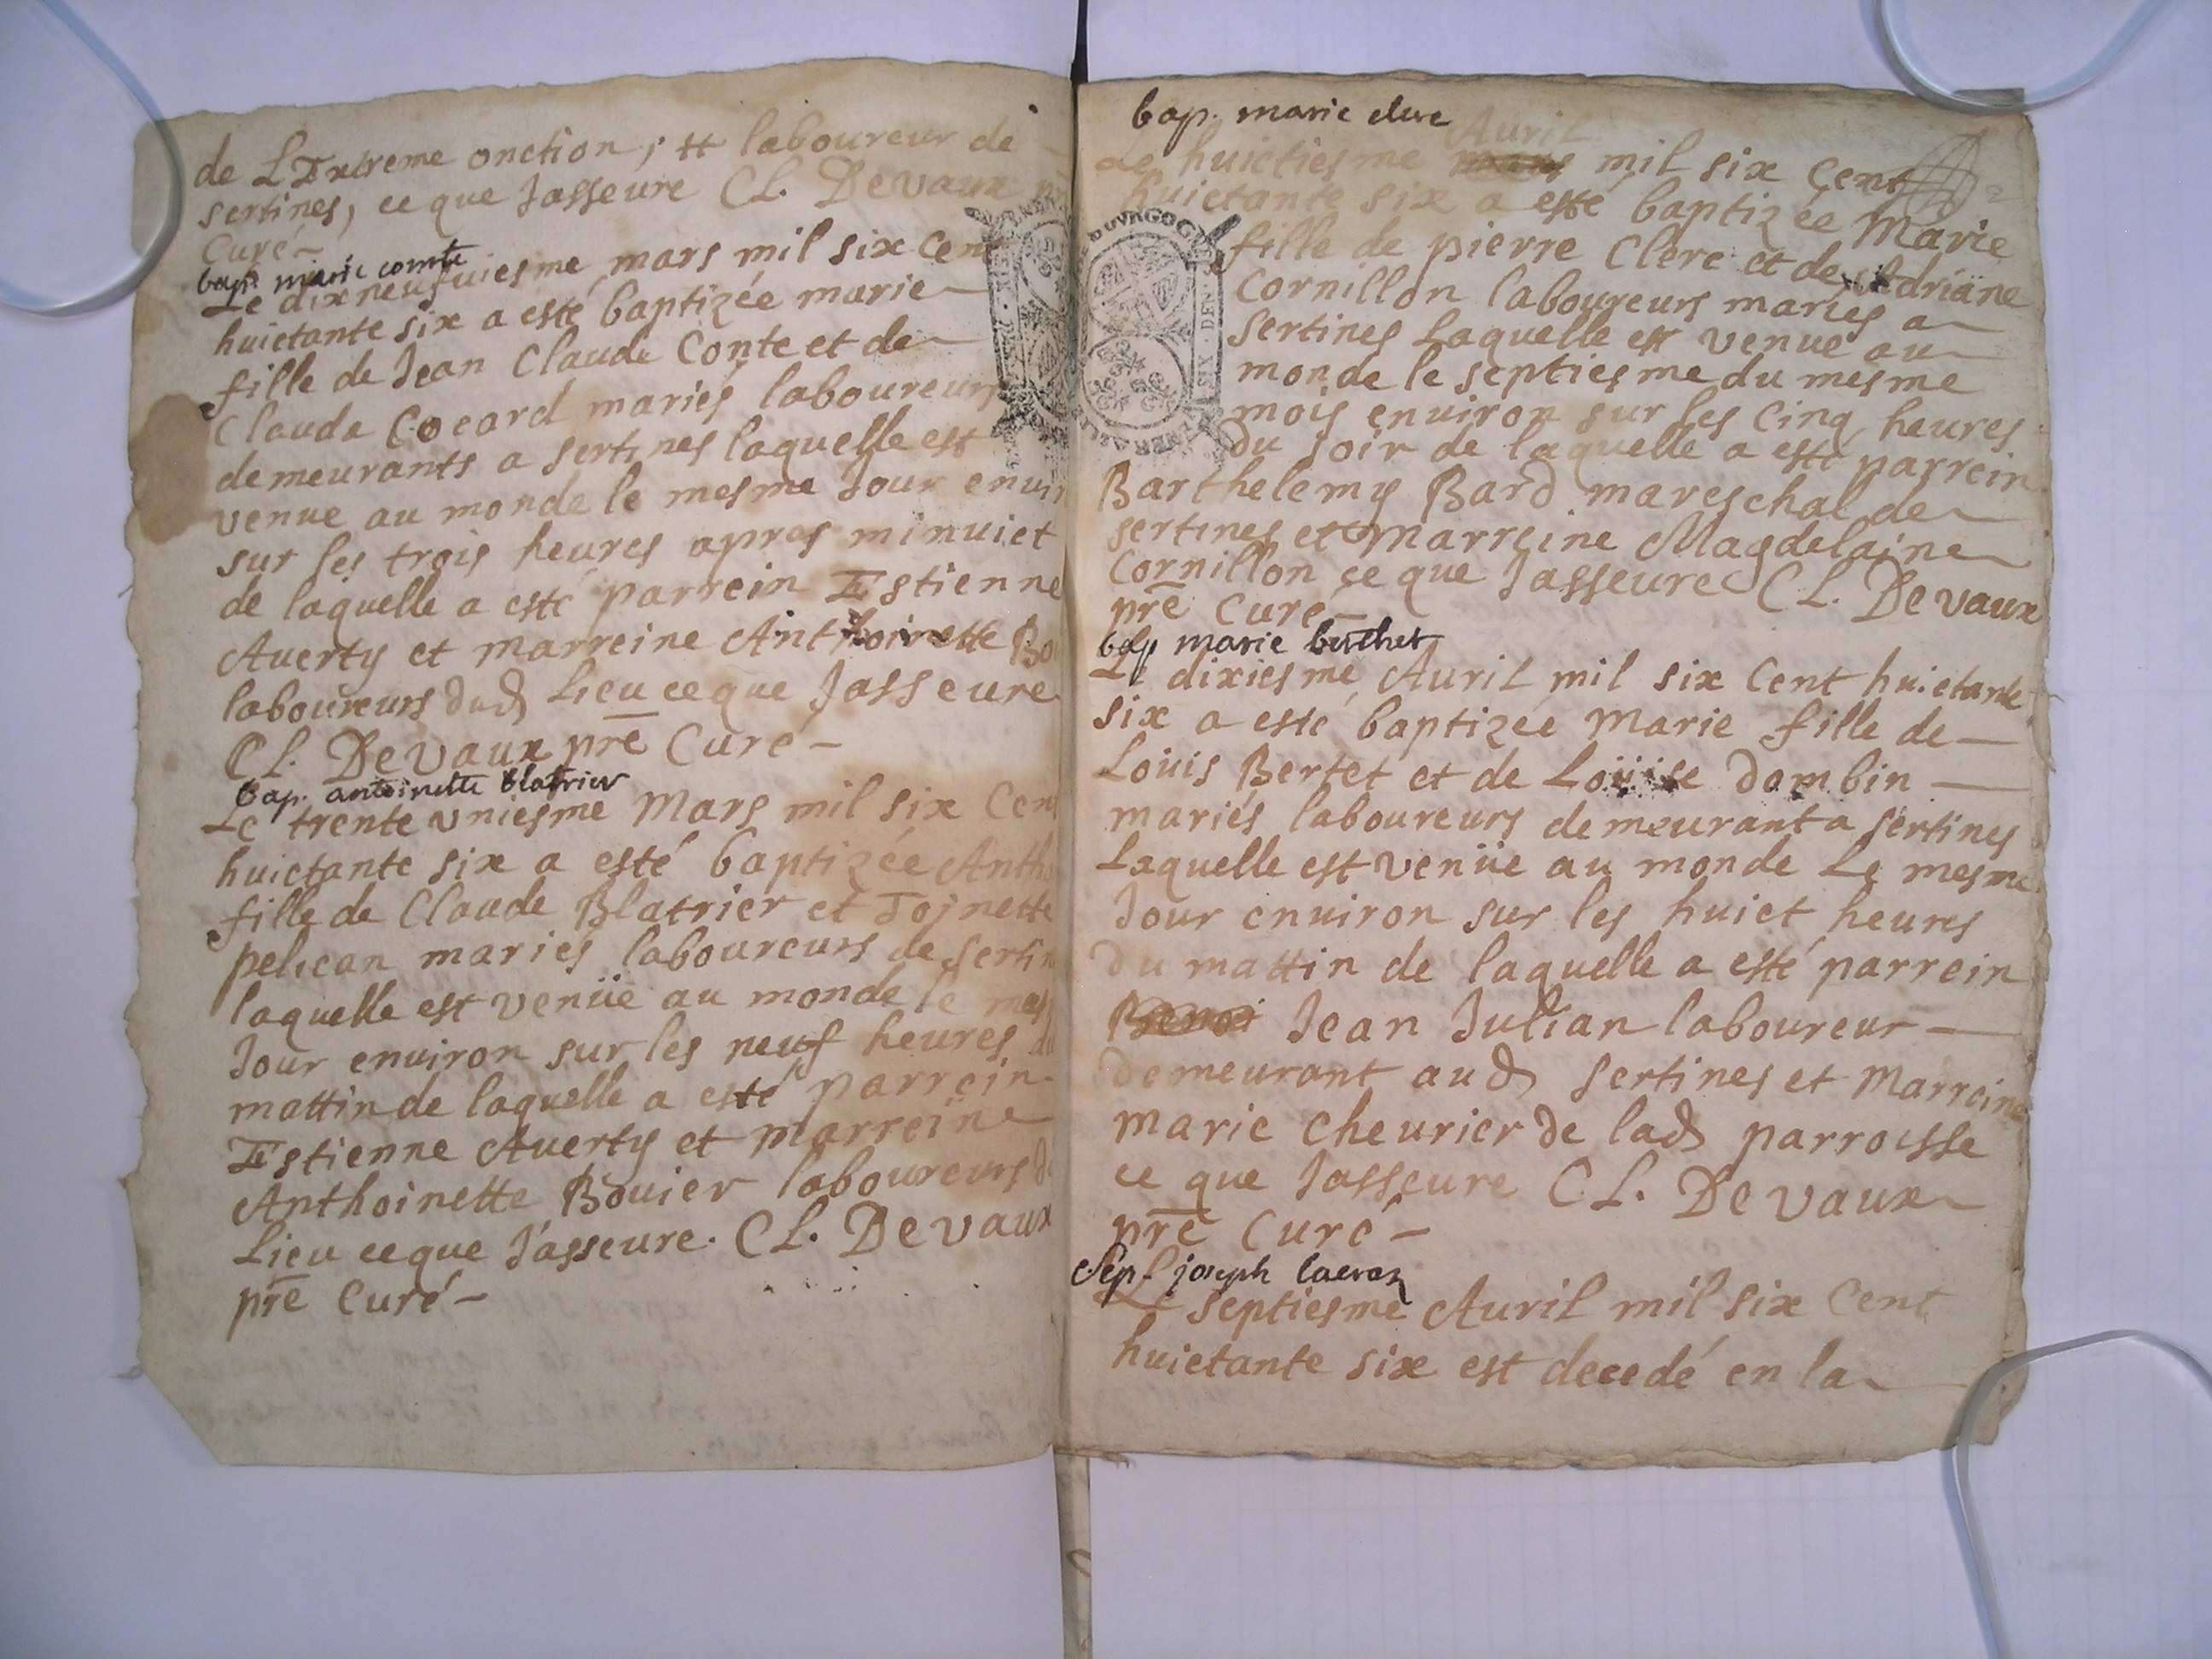 de L'Extreme onction, et laboureur de
sertines, ce que Jasseure CL. Devaux
Curé
bap. marie comte
Le dixneufuiesme mars mil six Cent
huictante six a esté baptizée marie
fille de Jean Claude Conte et de
Claude Cocard mariés laboureurs
demeurants a sertines laquelle est
venue au monde le mesme Jour enuir
sur les trois heures apres minuict
de laquelle a esté parrein Estienne
Auerty et marreine Anthoinette Bo
laboureurs dud Lieu ce que Jasseure
CL. Devaux pre Curé
bap. antoinette blatrier
Le trente vniesme Mars mil six Cent
huictante six a esté baptizée Antho
fille de Claude Blatrier et Tojnette
pelican mariés laboureurs de sertin
laquelle est venüe au monde le mes
Jour enuiron sur les neuf heures du
mattin de laquelle a esté parrein
Estienne Auerty et marreine
Anthoinette Bouier laboureurs d
Lieu ce que J'asseure. CL. Devaux
pre Curé
bap. marie clerc
Auril
Le huictiesme mars mil six Cent
huictante six a esté baptizée Marie
fille de pierre Clerc et de Adriane
Cornillon laboureurs mariés a
sertines Laquelle est venue au
monde le septiesme du mesme
mois enuiron sur les Cinq heures
du soir de laquelle a esté parrein
Barthelemy Bard mareschal de
sertines et Marreine Magdelaine
Cornillon ce que Jasseure CL. Devaux
pre Curé
bap marie berthet
Le dixiesme Auril mil six Cent huictante
six a esté baptizée Marie fille de
Loüis Bertet et de Loüise dombin
mariés laboureurs demeurant a sertines
Laquelle est venüe au monde Le mesme
Jour enuiron sur les huict heures
du mattin de laquelle a esté parrein
Jean Julian laboureur
demeurant aud sertines et Marreine
marie cheurier de lad parroisse
ce que Jasseure CL. Devaux
pre Curé
Sep. joseph
Le septiesme Auril mil six Cent
huictante six est decedé en la